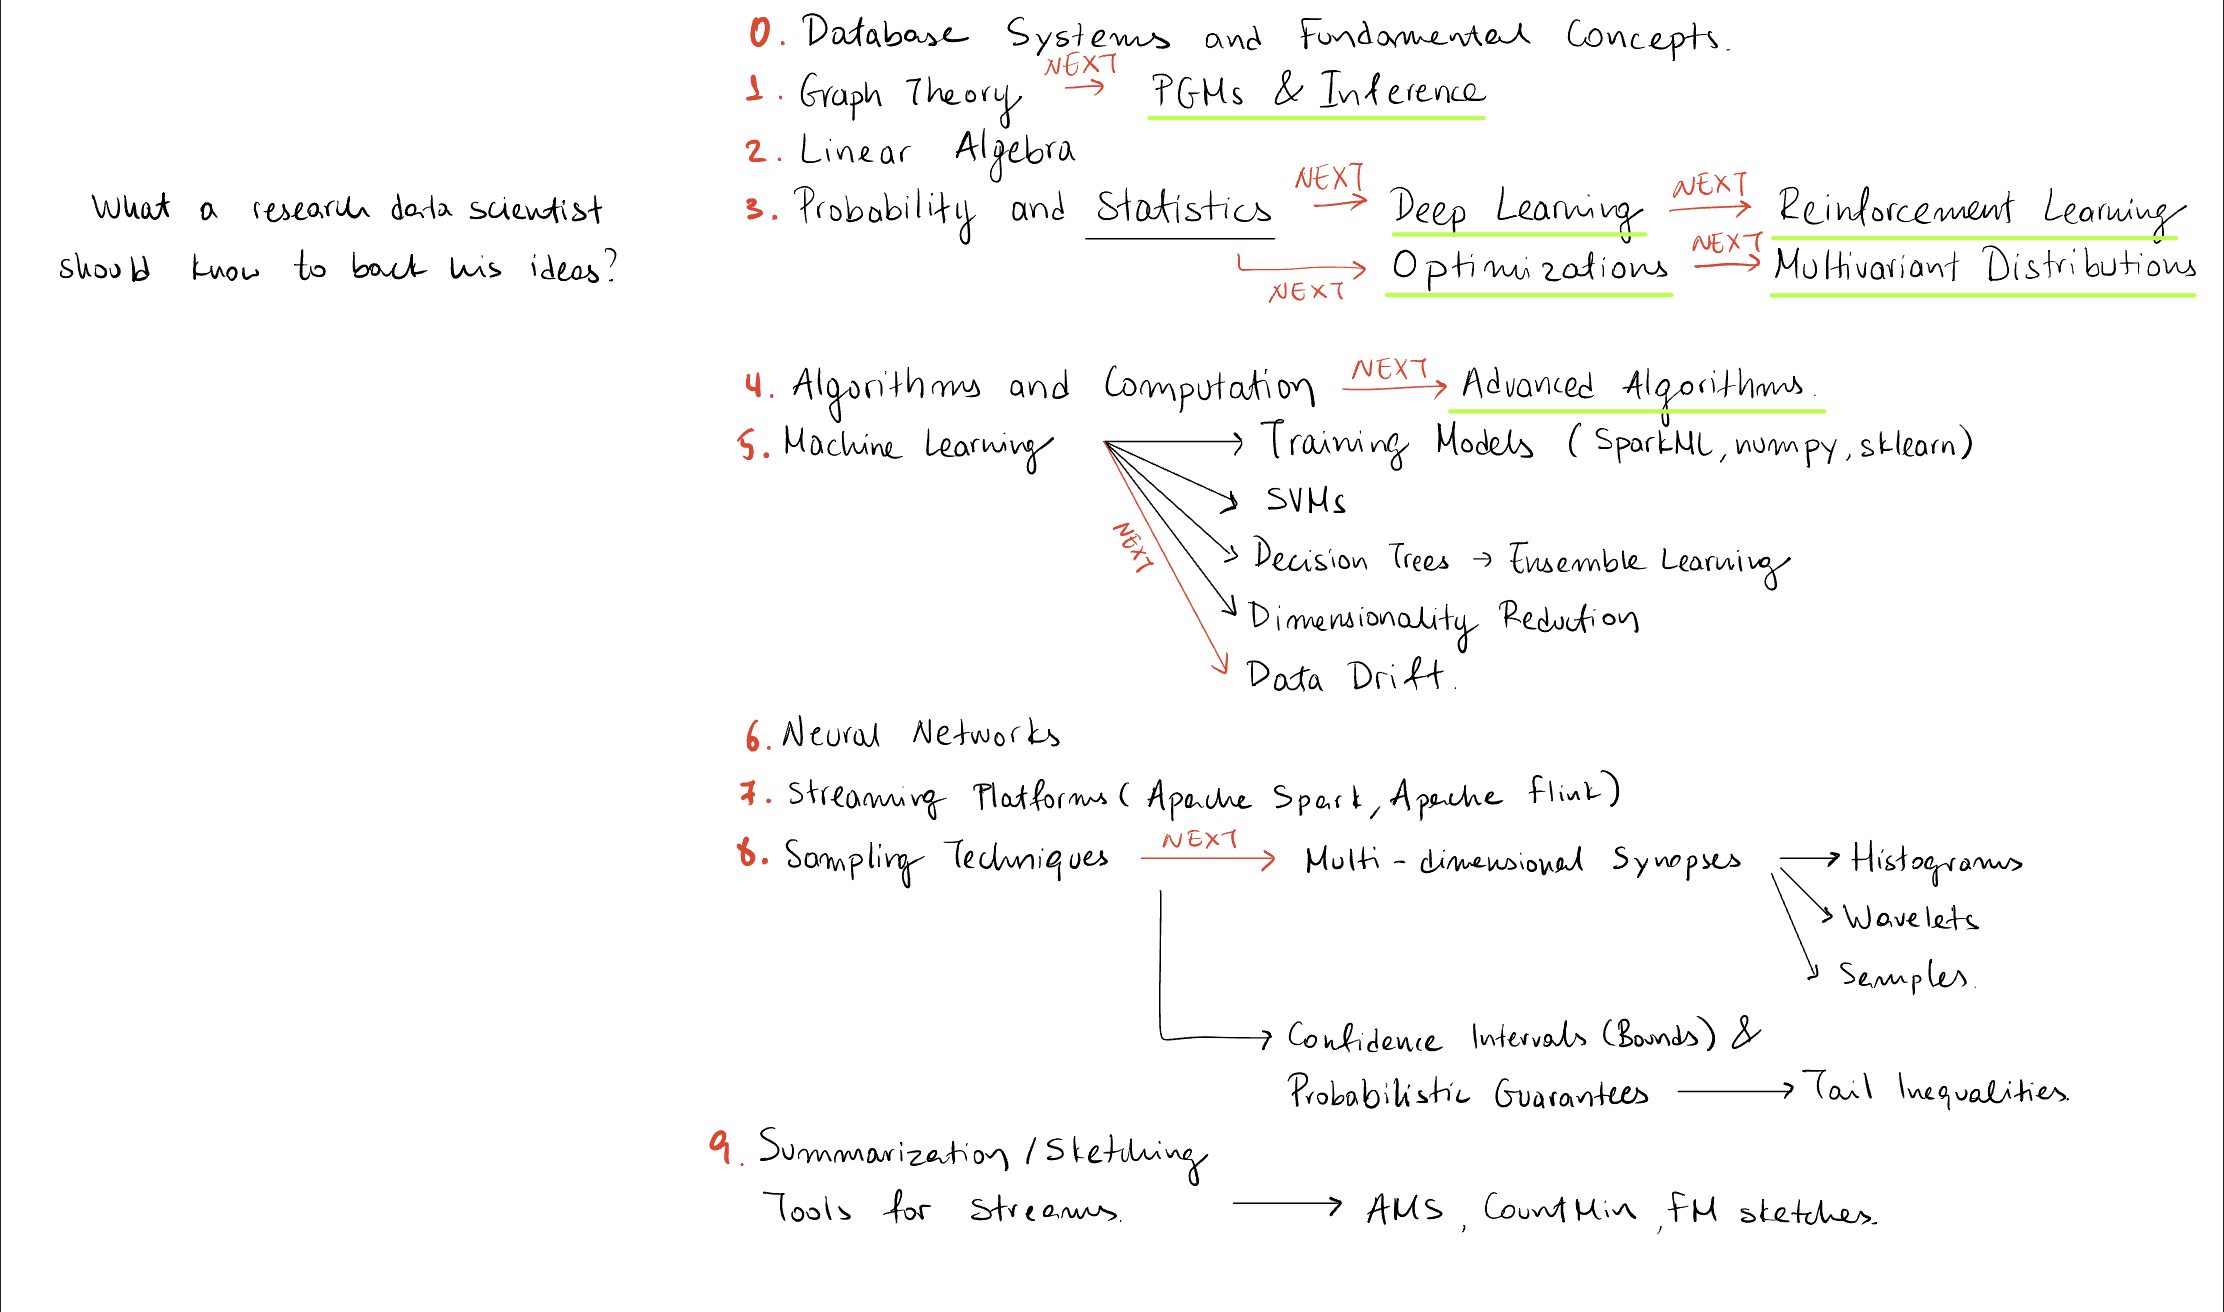 What a research data scientist
should know to back his ideas?
0. Database Systems and Fundamental Concepts.
1. Graph Theory NEXT → PGMs & Inference
2. Linear Algebra
3. Probability and Statistics NEXT → Deep Learning NEXT → Reinforcement Learning
NEXT → Optimizations NEXT → Multivariant Distributions
4. Algorithms and Computation NEXT → Advanced Algorithms.
5. Machine Learning → Training Models (SparkML, numpy, sklearn)
SVMs
Decision Trees → Ensemble Learning
Dimensionality Reduction
NEXT Data Drift.
6. Neural Networks
7. Streaming Platforms (Apache Spark, Apache Flink)
8. Sampling Techniques NEXT → Multi-dimensional Synopses → Histograms
Wavelets
Samples.
Confidence Intervals (Bounds) &
Probabilistic Guarantees → Tail Inequalities.
9. Summarization / Sketching
Tools for Streams. → AMS, CountMin, FM sketches.